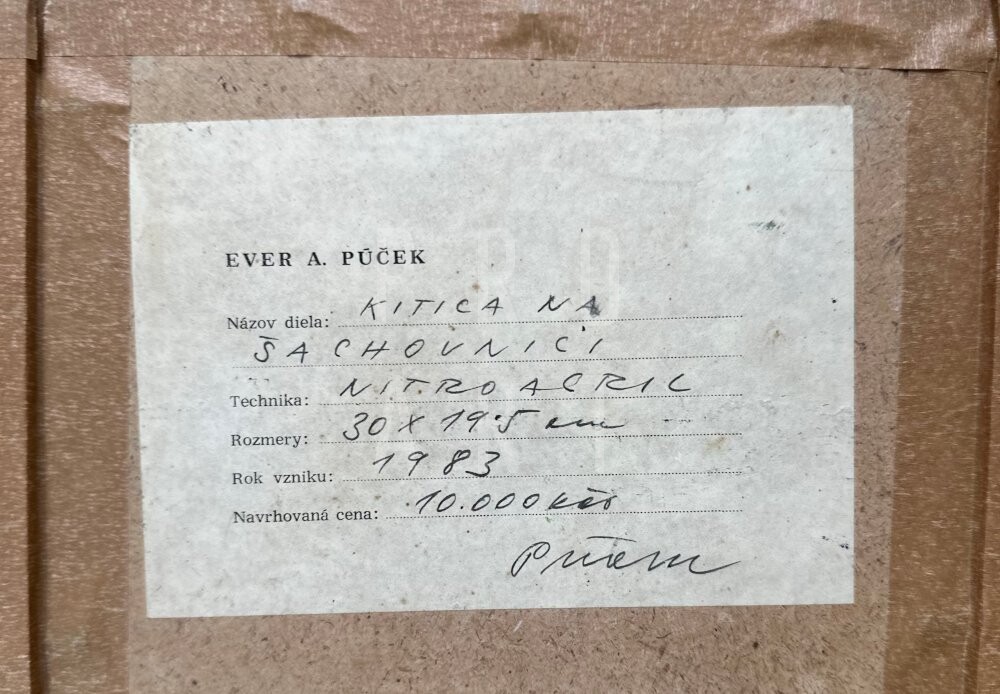 EVER A. PÚČEK
Názov diela: KITICA NA
ŠACHOVNICI
Technika: NITROACRIL
Rozmery: 30 X 19.5 cm
Rok vzniku: 1983
Navrhovaná cena: 10.000 Kčs